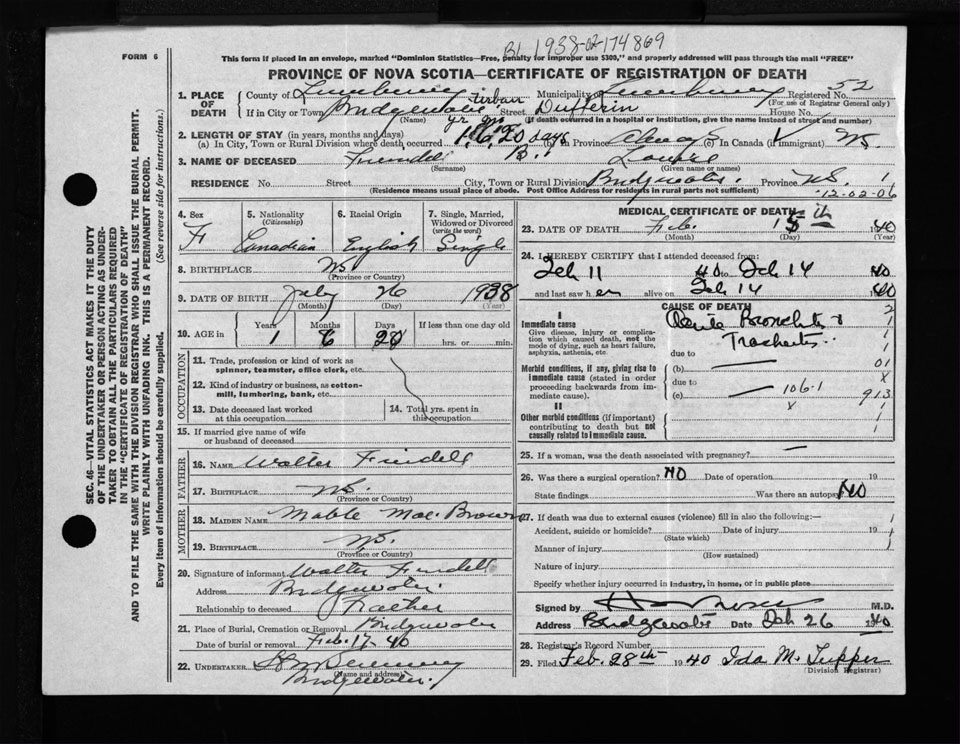 BL 1938-02-174869
FORM 6
This form if placed in an envelope, marked "Dominion Statistics—Free, penalty for improper use $300", and properly addressed will pass through the mail "FREE"
PROVINCE OF NOVA SCOTIA—CERTIFICATE OF REGISTRATION OF DEATH
1. PLACE OF DEATH
County of Lunenburg Municipality of Lunenburg Registered No. 52
urban
(For use of Registrar General only)
If in City or Town Bridgewater Street Dufferin House No.
(Name) (If death occurred in a hospital or institution, give the name instead of street and number)
2. LENGTH OF STAY (in years, months and days)
(a) In City, Town or Rural Division where death occurred 1 6 20 days (b) In Province Always (c) In Canada (if immigrant)
3. NAME OF DECEASED B. Louise
(Surname) (Given name or names)
RESIDENCE No. Street City, Town or Rural Division Bridgewater. Province N.S. 1
(Residence means usual place of abode. Post Office Address for residents in rural parts not sufficient)
12-02-06
4. Sex F
5. Nationality (Citizenship) Canadian
6. Racial Origin English
7. Single, Married, Widowed or Divorced (write the word) Single
8. BIRTHPLACE N.S.
(Province or Country)
9. DATE OF BIRTH July 26 1938
(Month) (Day) (Year)
10. AGE in Years 1 Months 6 Days 20 If less than one day old hrs. or min.
OCCUPATION
11. Trade, profession or kind of work as spinner, teamster, office clerk, etc.
12. Kind of industry or business, as cotton-mill, lumbering, bank, etc.
13. Date deceased last worked at this occupation
14. Total yrs. spent in this occupation
15. If married give name of wife or husband of deceased
FATHER
16. NAME Walter
17. BIRTHPLACE N.S.
(Province or Country)
MOTHER
18. MAIDEN NAME Mable Mae. Brown
19. BIRTHPLACE N.S.
(Province or Country)
20. Signature of informant Walter
Address Bridgewater
Relationship to deceased Father
21. Place of Burial, Cremation or Removal Bridgewater
Date of burial or removal Feb. 17 - 40
22. UNDERTAKER
(Name and address)
Bridgewater.
MEDICAL CERTIFICATE OF DEATH
23. DATE OF DEATH Feb. 15th 1940
(Month) (Day) (Year)
24. I HEREBY CERTIFY that I attended deceased from:
Feb 11 40 to Feb 14 40
and last saw her alive on Feb 14 1940
CAUSE OF DEATH
I
Immediate cause Acute Bronchitis & Tracheitis..
Give disease, injury or complication which caused death, not the mode of dying, such as heart failure, asphyxia, asthenia, etc.
due to
(b)
Morbid conditions, if any, giving rise to immediate cause (stated in order proceeding backwards from immediate cause).
due to
(c) 106.1
II
Other morbid conditions (if important) contributing to death but not causally related to immediate cause.
2
1
1
1
01
X
913
X
1
25. If a woman, was the death associated with pregnancy?
26. Was there a surgical operation? NO Date of operation 19
State findings Was there an autopsy NO
27. If death was due to external causes (violence) fill in also the following:—
Accident, suicide or homicide? Date of injury 19
(State which)
Manner of injury
(How sustained)
Nature of injury
Specify whether injury occurred in industry, in home, or in public place
Signed by M.D.
Address Bridgewater Date Feb 26 1940
28. Registrar's Record Number
29. Filed Feb. 28th 1940 Ida M. Tupper
(Division Registrar)
SEC. 46—VITAL STATISTICS ACT MAKES IT THE DUTY
OF THE UNDERTAKER OR PERSON ACTING AS UNDER-
TAKER TO OBTAIN ALL THE PARTICULARS REQUIRED
IN THE "CERTIFICATE OF REGISTRATION OF DEATH"
AND TO FILE THE SAME WITH THE DIVISION REGISTRAR WHO SHALL ISSUE THE BURIAL PERMIT.
WRITE PLAINLY WITH UNFADING INK. THIS IS A PERMANENT RECORD.
Every item of information should be carefully supplied. (See reverse side for instructions.)